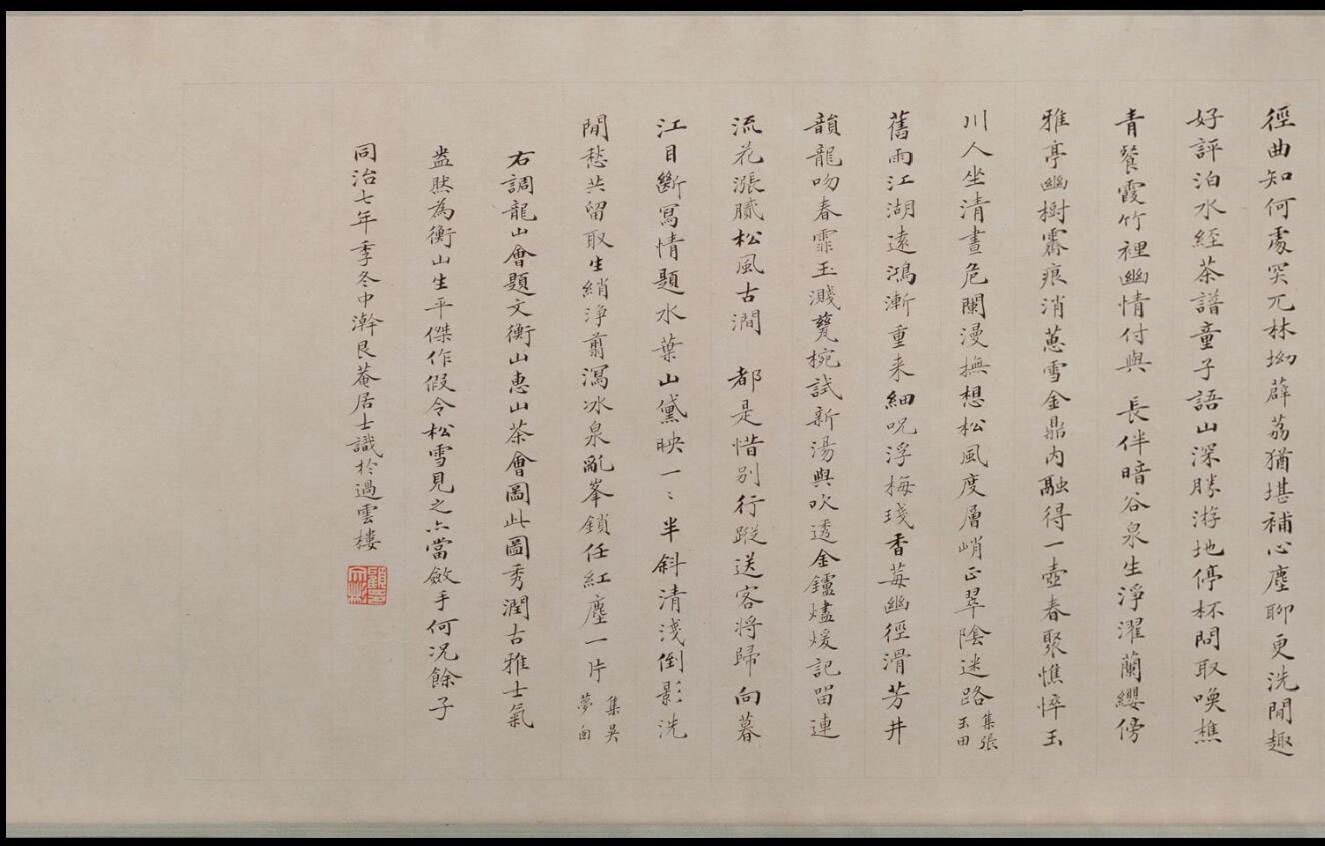 徑曲知何處突兀林坳薜荔猶堪補心塵聊更洗閒趣
好評泊水經茶譜童子語山深勝游地停杯問取喚樵
青餐霞竹裡幽情付與 長伴暗谷泉生淨濯蘭纓傍
雅亭幽樹霽痕消蔥雪金鼎內融得一壺春聚憔悴玉
川人坐清晝危闌漫撫想松風度層峭正翠陰迷路集張玉田
舊雨江湖遠鴻漸重来細咒浮梅琖香莓幽徑滑芳井
韻龍吻春霏玉濺甆椀試新湯與吹透金鑪燼煖記留連
流花漲膩松風古澗 都是惜別行蹤送客將歸向暮
江目斷寫情題水葉山黛映一〻半斜清淺倒影洗
閒愁共留取生綃淨翦瀉冰泉亂峯鎖任紅塵一片集吳夢窗
右調龍山會題文衡山惠山茶會圖此圖秀潤古雅士氣
盎然為衡山生平傑作假令松雪見之亦當斂手何況餘子
同治七年季冬中澣艮菴居士識於過雲樓